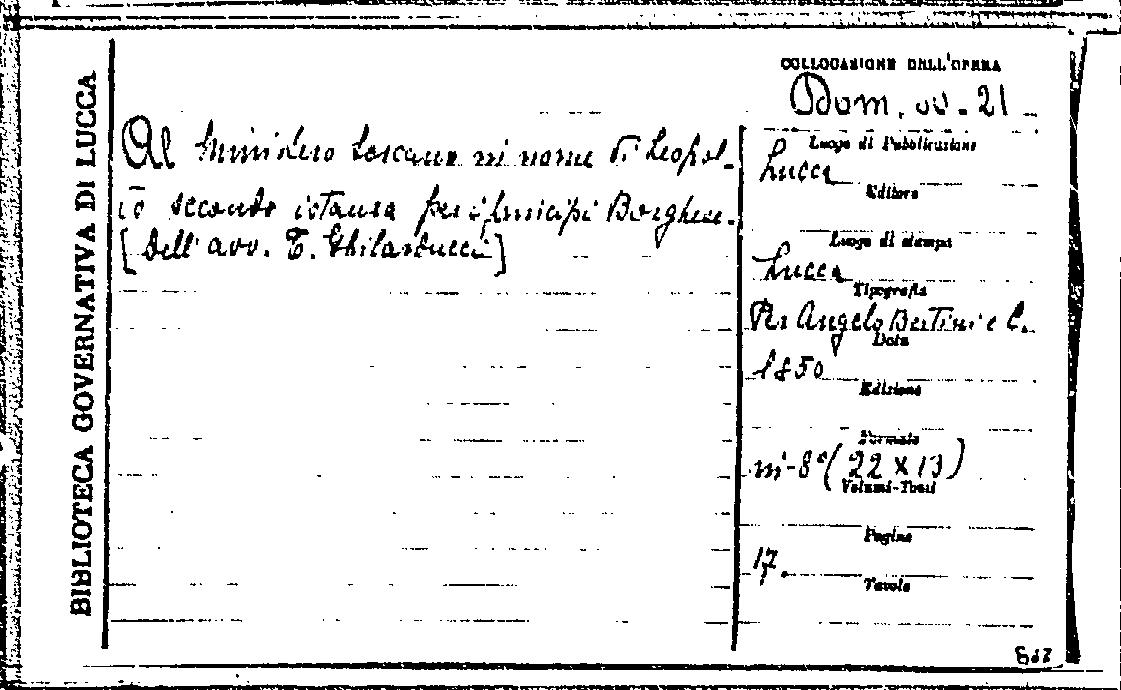 BIBLIOTECA GOVERNATIVA DI LUCCA
Al Ministero toscano in nome di Leopol-
do secondo istanza per i Principi Borghese.
[Dell'avv. T. Ghilarducci]
COLLOCAZIONE DELL'OPERA
Bom. 21
Luogo di Pubblicazione
Lucca
Editore
Luogo di stampa
Lucca
Tipografia
Per Angelo Bertini e C.
Data
1850
Edizione
Formato
in-8° (22 x 13)
Volumi-Tomi
Pagine
17.
Tavole